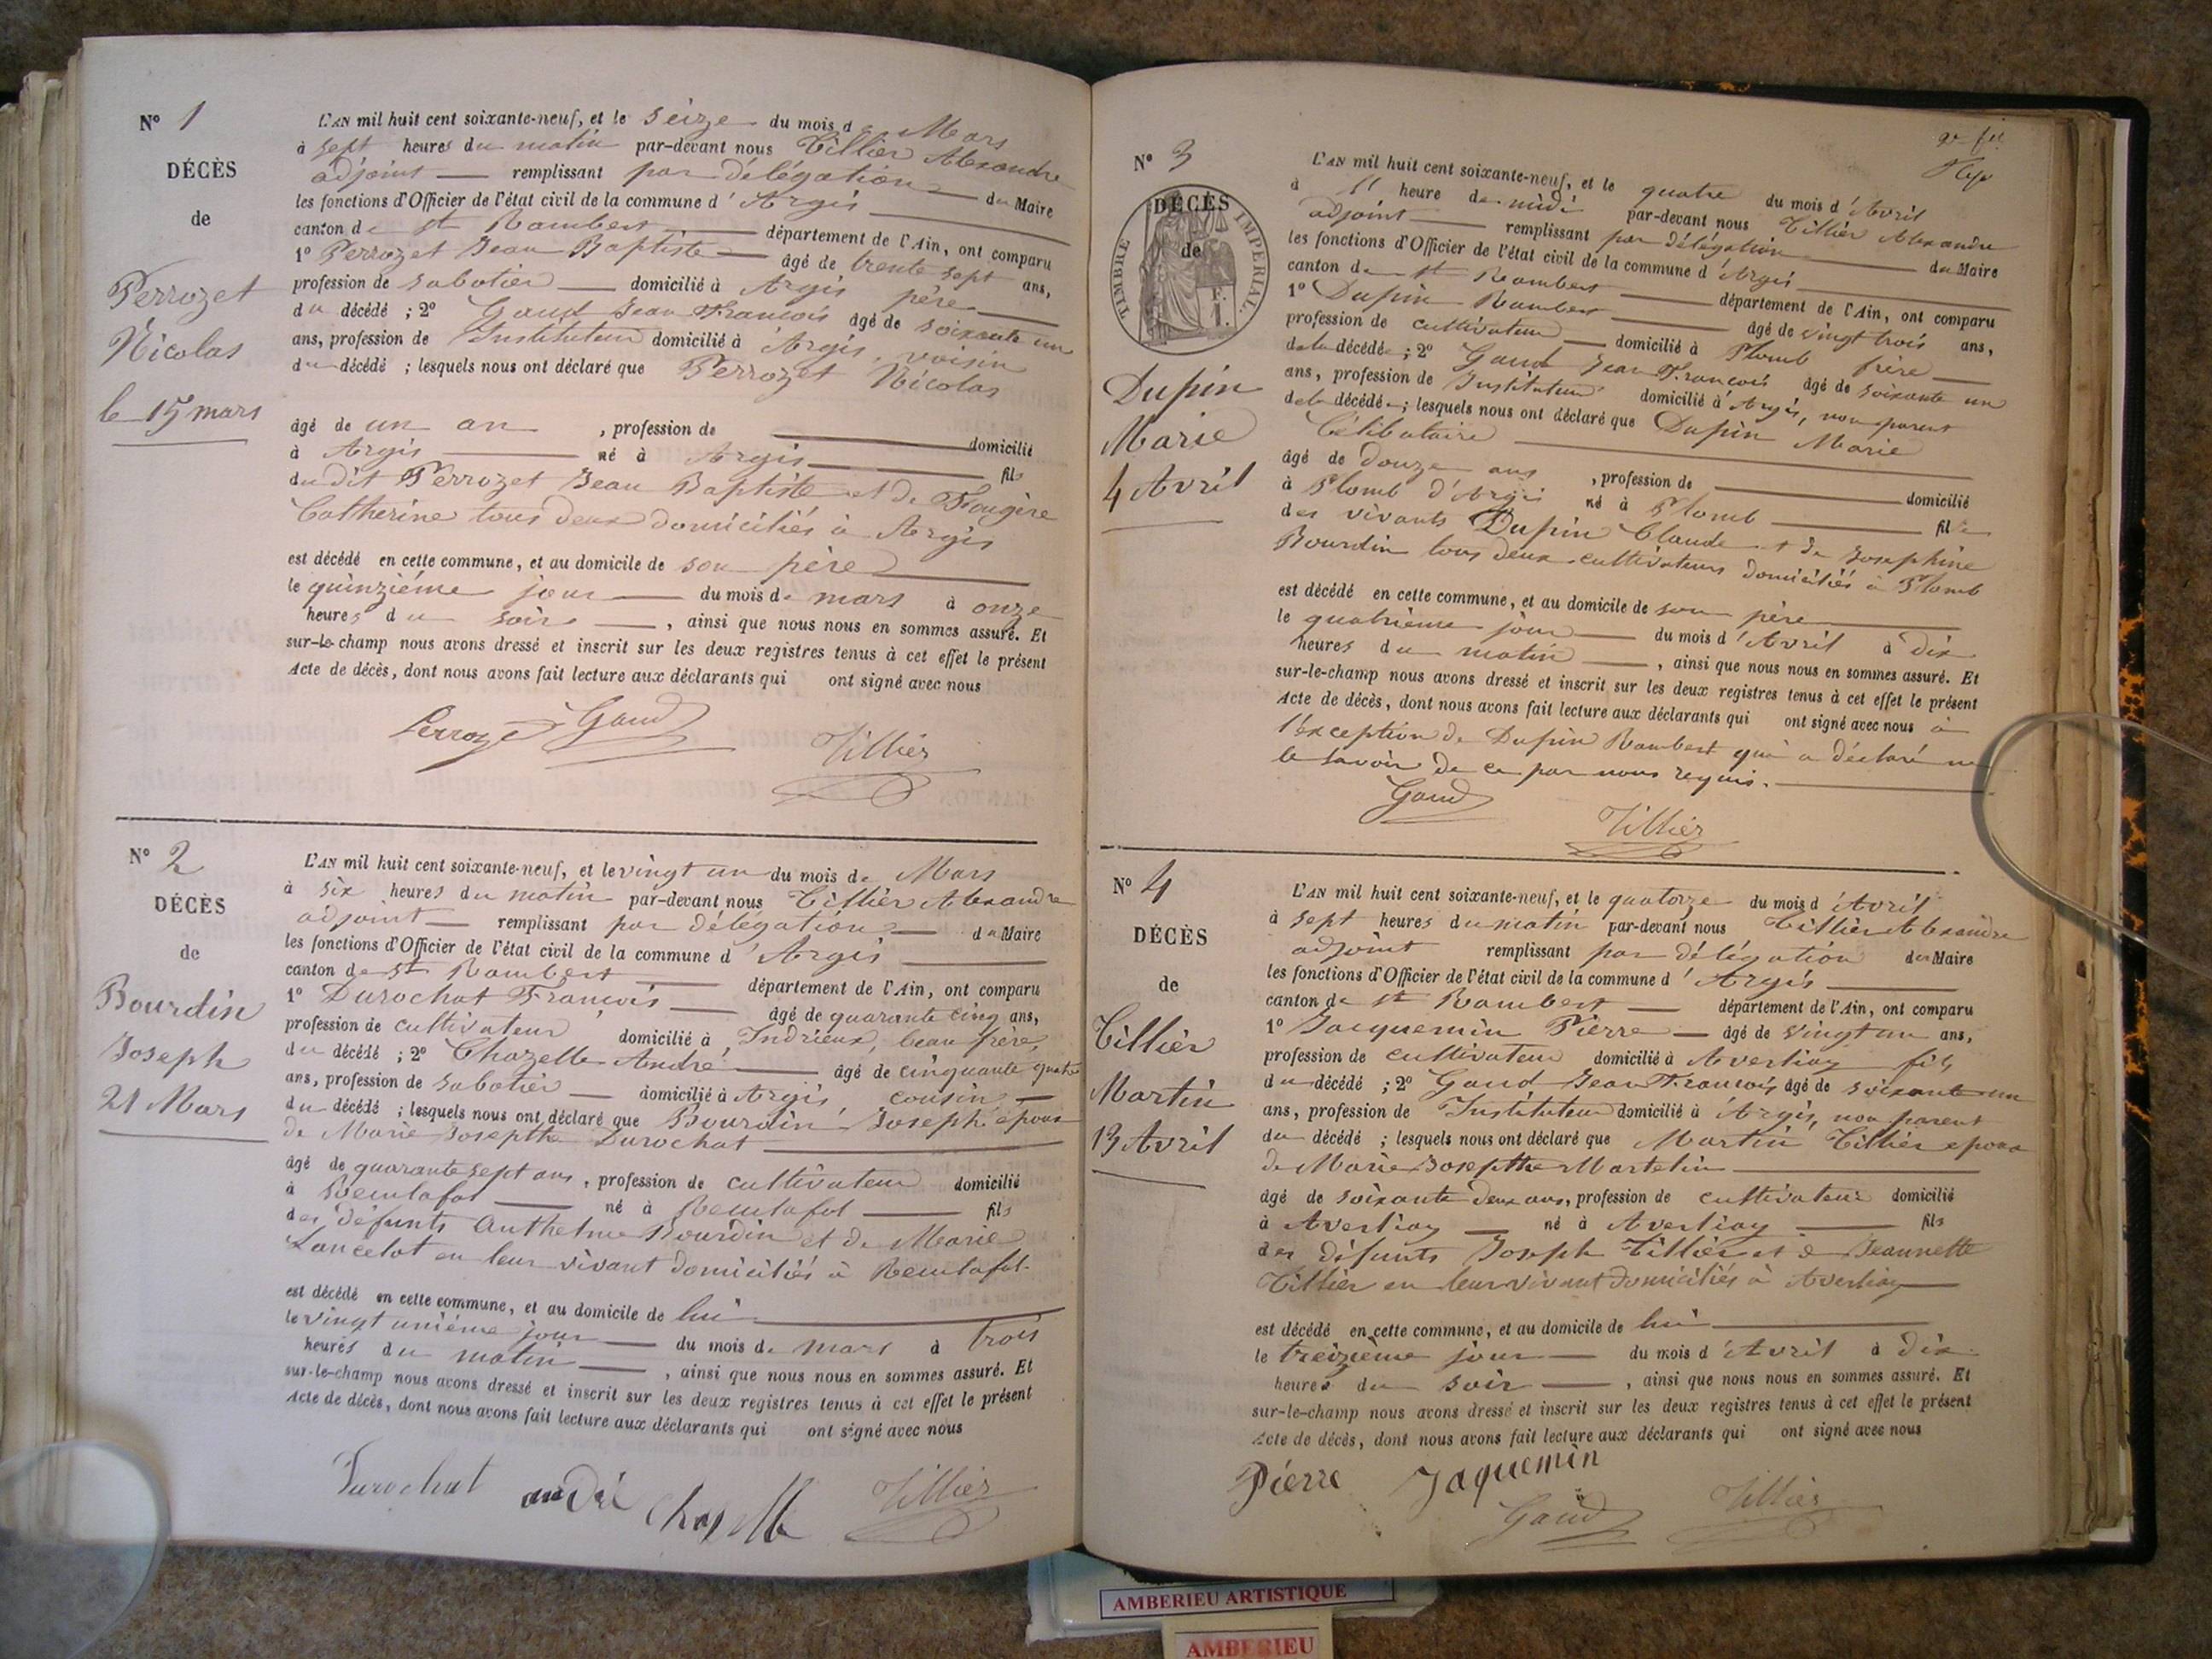 N° 1
DÉCÈS
de
Perrozet
Nicolas
le 15 mars
L'AN mil huit cent soixante-neuf, et le seize du mois de Mars
à sept heures du matin par-devant nous Tillier Alexandre
adjoint remplissant par délégation du Maire
les fonctions d'Officier de l'état civil de la commune d'Argis
canton de St Rambert département de l'Ain, ont comparu
1° Perrozet Jean Baptiste âgé de trente sept ans,
profession de sabotier domicilié à Argis père
du décédé ; 2° Gaud Jean François âgé de soixante un
ans, profession de Instituteur domicilié à Argis, voisin
du décédé ; lesquels nous ont déclaré que Perrozet Nicolas
âgé de un an , profession de domicilié
à Argis né à Argis fils
du dit Perrozet Jean Baptiste et de Fougère
Catherine tous deux domiciliés à Argis
est décédé en cette commune, et au domicile de son père
le quinzième jour du mois de mars à onze
heures du soir , ainsi que nous nous en sommes assuré. Et
sur-le-champ nous avons dressé et inscrit sur les deux registres tenus à cet effet le présent
Acte de décès, dont nous avons fait lecture aux déclarants qui ont signé avec nous
Perrozet Gaud Tillier
N° 2
DÉCÈS
de
Bourdin
Joseph
21 Mars
L'AN mil huit cent soixante-neuf, et le vingt un du mois de Mars
à six heures du matin par-devant nous Tillier Alexandre
adjoint remplissant par délégation du Maire
les fonctions d'Officier de l'état civil de la commune d'Argis
canton de St Rambert département de l'Ain, ont comparu
1° Durochat François âgé de quarante cinq ans,
profession de cultivateur domicilié à Indrieux, beau frère,
du décédé ; 2° Chazelle André âgé de cinquante quatre
ans, profession de sabotier domicilié à Argis cousin
du décédé ; lesquels nous ont déclaré que Bourdin Joseph époux
de Marie Josephte Durochat
âgé de quarante sept ans, profession de cultivateur domicilié
à Reculafol né à Reculafol fils
des défunts Anthelme Bourdin et de Marie
Lancelot en leur vivant domiciliés à Reculafol
est décédé en cette commune, et au domicile de lui
le vingt unième jour du mois de mars à trois
heures du matin , ainsi que nous nous en sommes assuré. Et
sur-le-champ nous avons dressé et inscrit sur les deux registres tenus à cet effet le présent
Acte de décès, dont nous avons fait lecture aux déclarants qui ont signé avec nous
Durochat andré chazelle Tillier
N° 3
DÉCÈS
de
TIMBRE IMPERIAL.
Dupin
Marie
4 Avril
L'AN mil huit cent soixante-neuf, et le quatre du mois d'Avril
à heure de midi par-devant nous Tillier Alexandre
adjoint remplissant par délégation du Maire
les fonctions d'Officier de l'état civil de la commune d'Argis
canton de St Rambert département de l'Ain, ont comparu
1° Dupin Rambert âgé de vingt trois ans,
profession de cultivateur domicilié à Plomb frère
de la décédée ; 2° Gaud Jean François âgé de soixante un
ans, profession de Instituteur domicilié à Argis, non parent
de la décédée ; lesquels nous ont déclaré que Dupin Marie
Célibataire
âgé de douze ans , profession de domicilié
à Plomb d'Argis né à Plomb fille
des vivants Dupin Claude et de Josephine
Bourdin tous deux cultivateurs domiciliés à Plomb
est décédé en cette commune, et au domicile de son père
le quatrième jour du mois d'Avril à dix
heures du matin , ainsi que nous nous en sommes assuré. Et
sur-le-champ nous avons dressé et inscrit sur les deux registres tenus à cet effet le présent
Acte de décès, dont nous avons fait lecture aux déclarants qui ont signé avec nous à
l'exception de Dupin Rambert qui a déclaré ne
le savoir de ce par nous requis.
Gaud Tillier
N° 4
DÉCÈS
de
Tillier
Martin
13 Avril
L'AN mil huit cent soixante-neuf, et le quatorze du mois d'Avril
à sept heures du matin par-devant nous Tillier Alexandre
adjoint remplissant par délégation du Maire
les fonctions d'Officier de l'état civil de la commune d'Argis
canton de St Rambert département de l'Ain, ont comparu
1° Jacquemin Pierre âgé de vingt un ans,
profession de cultivateur domicilié à Averliaz fils
du décédé ; 2° Gaud Jean François âgé de soixante un
ans, profession de Instituteur domicilié à Argis, non parent
du décédé ; lesquels nous ont déclaré que Martin Tillier époux
de Marie Josephte Martelin
âgé de soixante deux ans, profession de cultivateur domicilié
à Averliaz né à Averliaz fils
des défunts Joseph Tillier et de Jeannette
Tillier en leur vivant domiciliés à Averliaz
est décédé en cette commune, et au domicile de lui
le treizième jour du mois d'Avril à dix
heures du soir , ainsi que nous nous en sommes assuré. Et
sur-le-champ nous avons dressé et inscrit sur les deux registres tenus à cet effet le présent
Acte de décès, dont nous avons fait lecture aux déclarants qui ont signé avec nous
Pierre Jaquemin
Gaud Tillier
AMBERIEU ARTISTIQUE
AMBERIEU